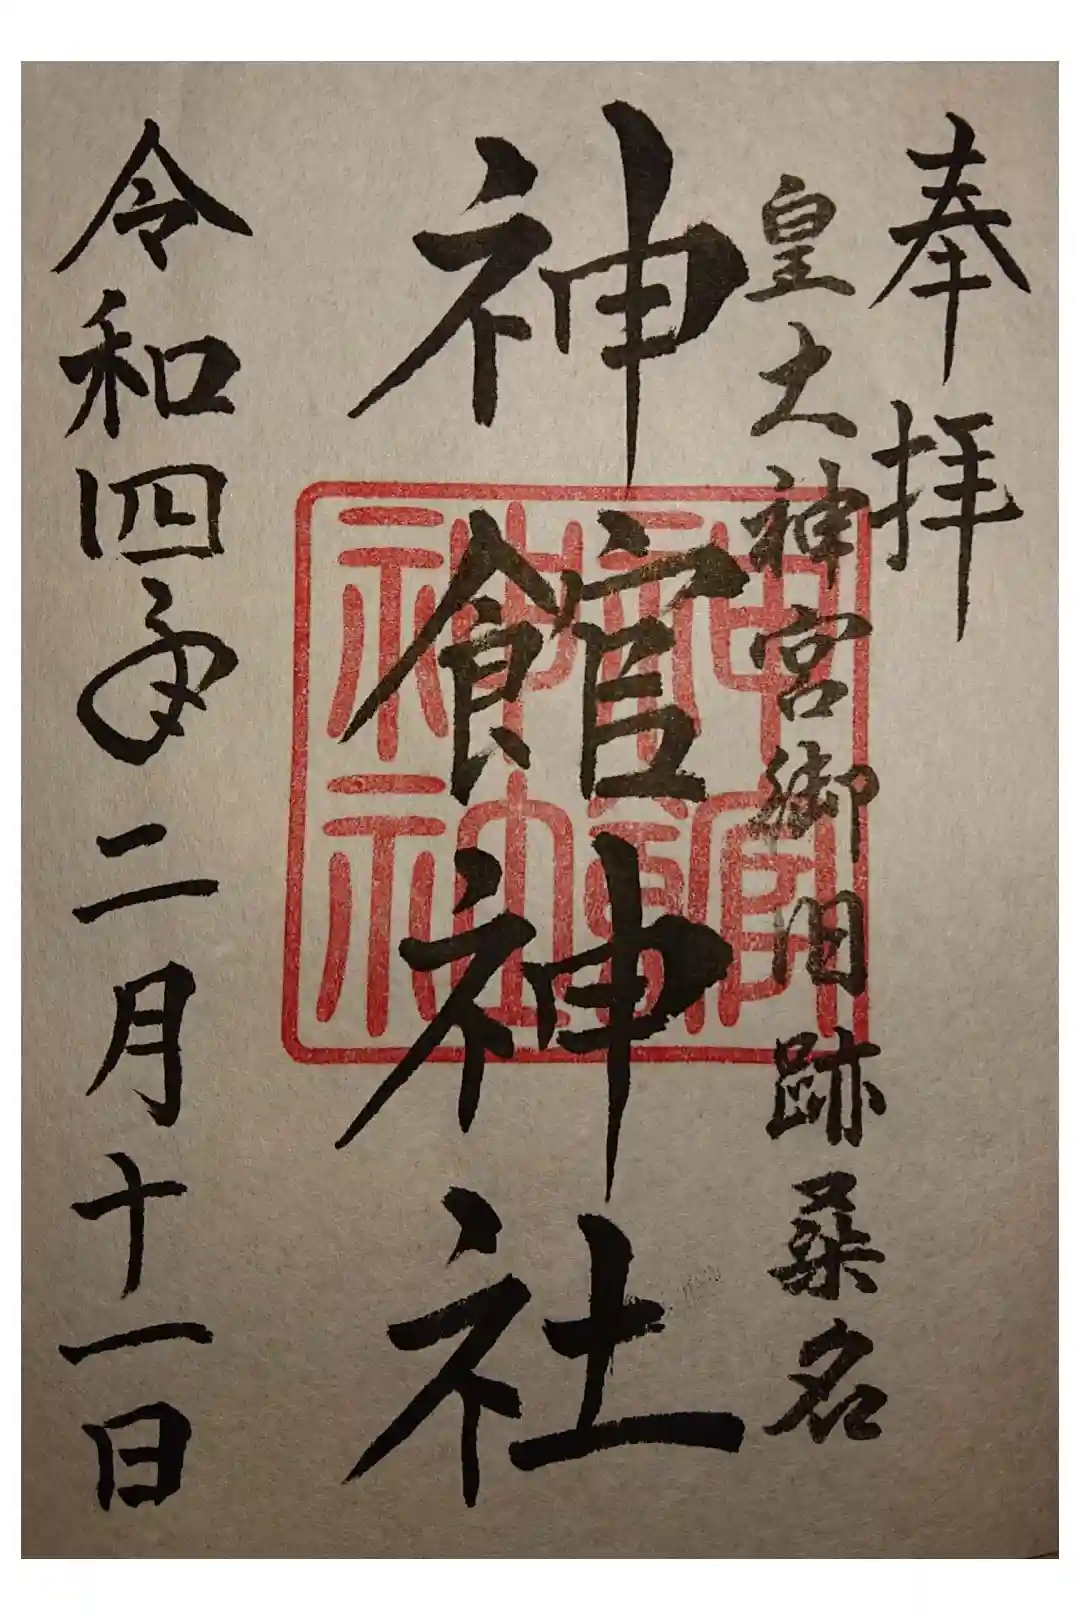 奉拝
皇大神宮御旧跡桑名
神館神社
神館神社
令和四年二月十一日